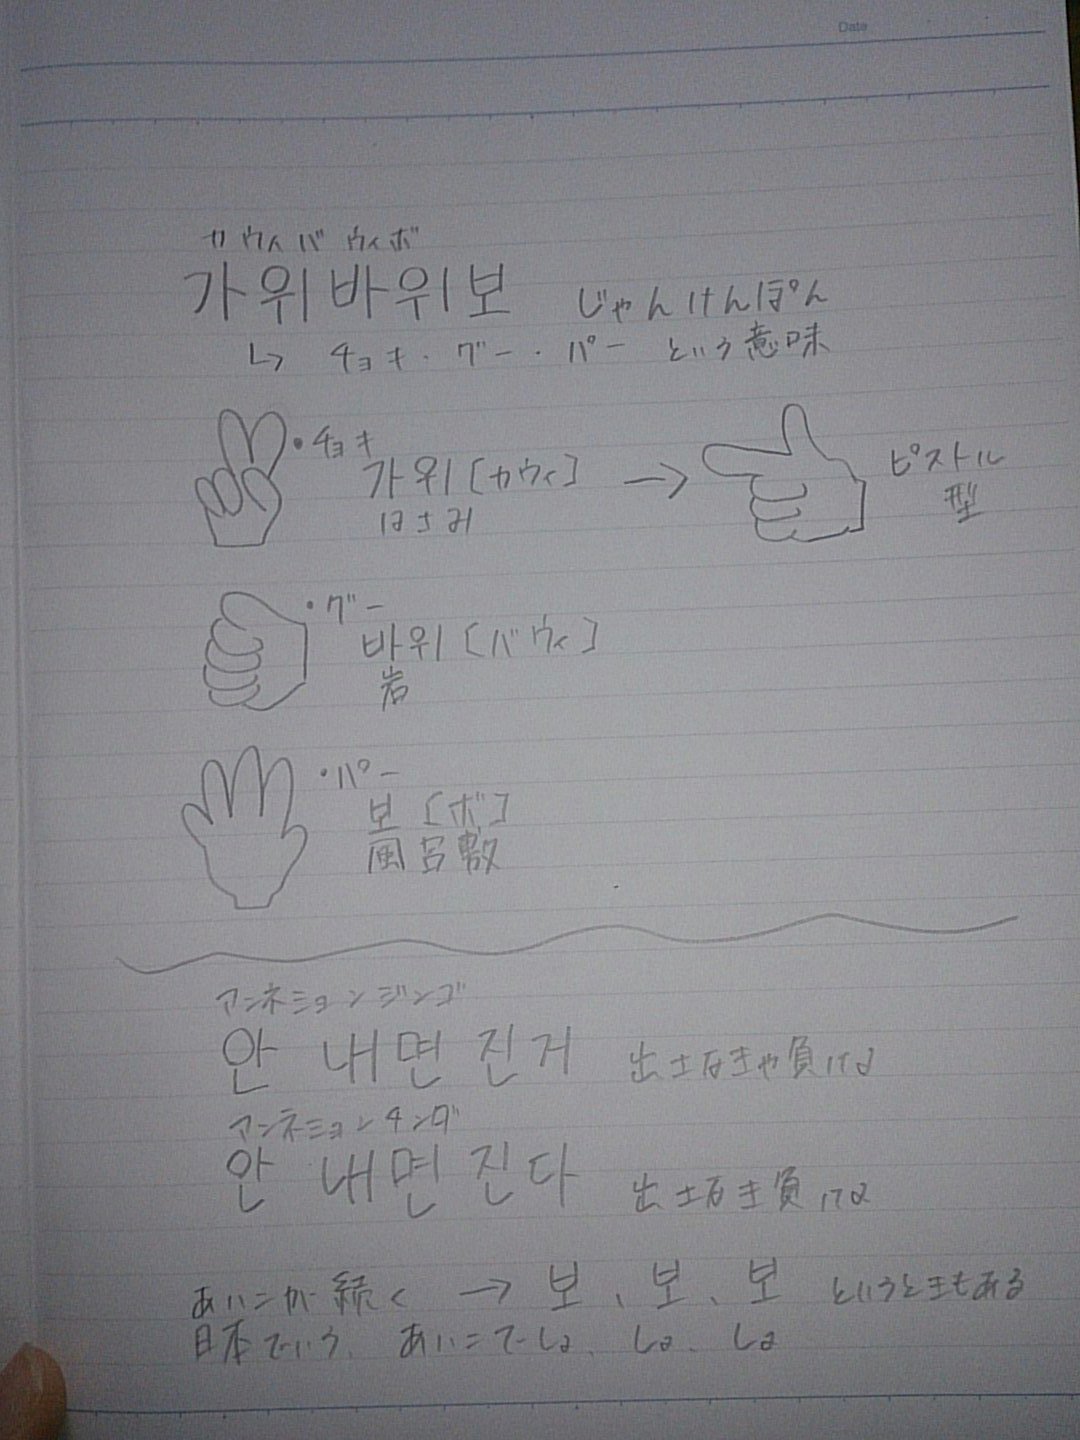 Data
カウィバウィボ
가위바위보 じゃんけんぽん
↳ チョキ・グー・パー という意味
・チョキ
가위[カウィ] → ピストル
はさみ 型
・グー
바위[バウィ]
岩
・パー
보[ボ]
風呂敷
アンネミョンジンゴ
안 내면 진거 出さなきゃ負けよ
アンネミョンチンダ
안 내면 진다 出さなき負けよ
あいこが続く → 보、보、보 というときもある
日本でいう、あいこでしょ、しょ、しょ